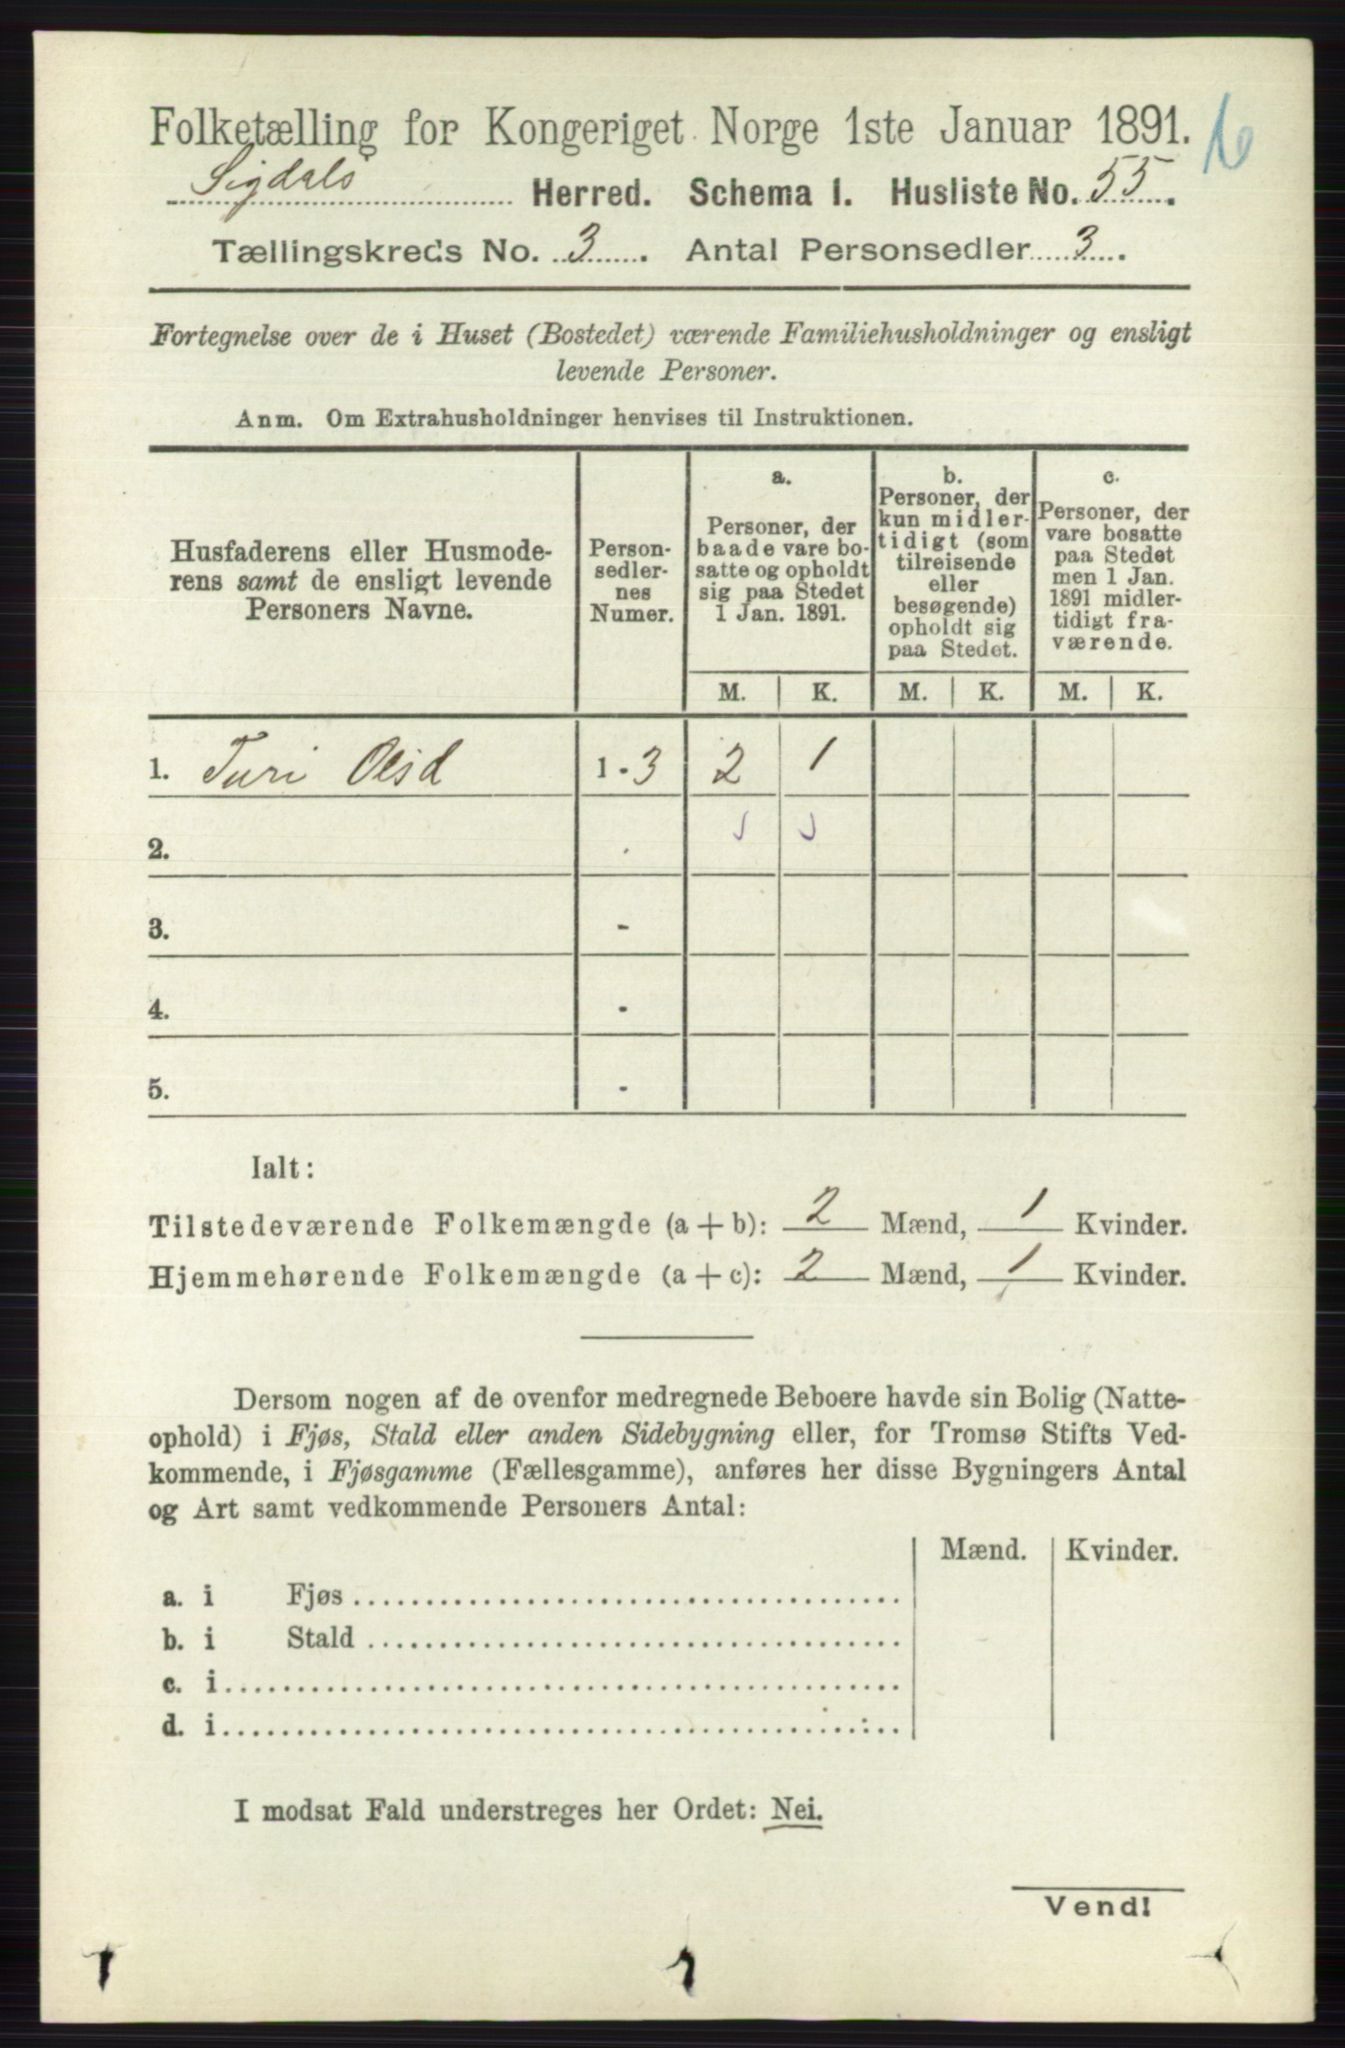 Folketælling for Kongeriget Norge 1ste Januar 1891.
Sigdals Herred. Schema 1. Husliste No. 55.
Tællingskreds No. 3. Antal Personsedler 3.
Fortegnelse over de i Huset (Bostedet) værende Familiehusholdninger og ensligt
levende Personer.
Anm. Om Extrahusholdninger henvises til Instruktionen.
Husfaderens eller Husmode-
rens samt de ensligt levende
Personers Navne.
Person-
sedler-
nes
Numer.
a.
Personer, der
baade vare bo-
satte og opholdt
sig paa Stedet
1 Jan. 1891.
b.
Personer, der
kun midler-
tidigt (som
tilreisende
eller
besøgende)
opholdt sig
paa Stedet.
c.
Personer, der
vare bosatte
paa Stedet
men 1 Jan.
1891 midler-
tidigt fra-
værende.
M. K. M. K. M. K.
1. Turi Olsd 1 - 3 2 1
2.
3. -
4. -
5. -
Ialt:
Tilstedeværende Folkemængde (a + b): 2 Mænd, 1 Kvinder.
Hjemmehørende Folkemængde (a + c): 2 Mænd, 1 Kvinder.
Dersom nogen af de ovenfor medregnede Beboere havde sin Bolig (Natte-
ophold) i Fjøs, Stald eller anden Sidebygning eller, for Tromsø Stifts Ved-
kommende, i Fjøsgamme (Fællesgamme), anføres her disse Bygningers Antal
og Art samt vedkommende Personers Antal:
Mænd. Kvinder.
a. i Fjøs
b. i Stald
c. i
d. i
I modsat Fald understreges her Ordet: Nei.
Vend!